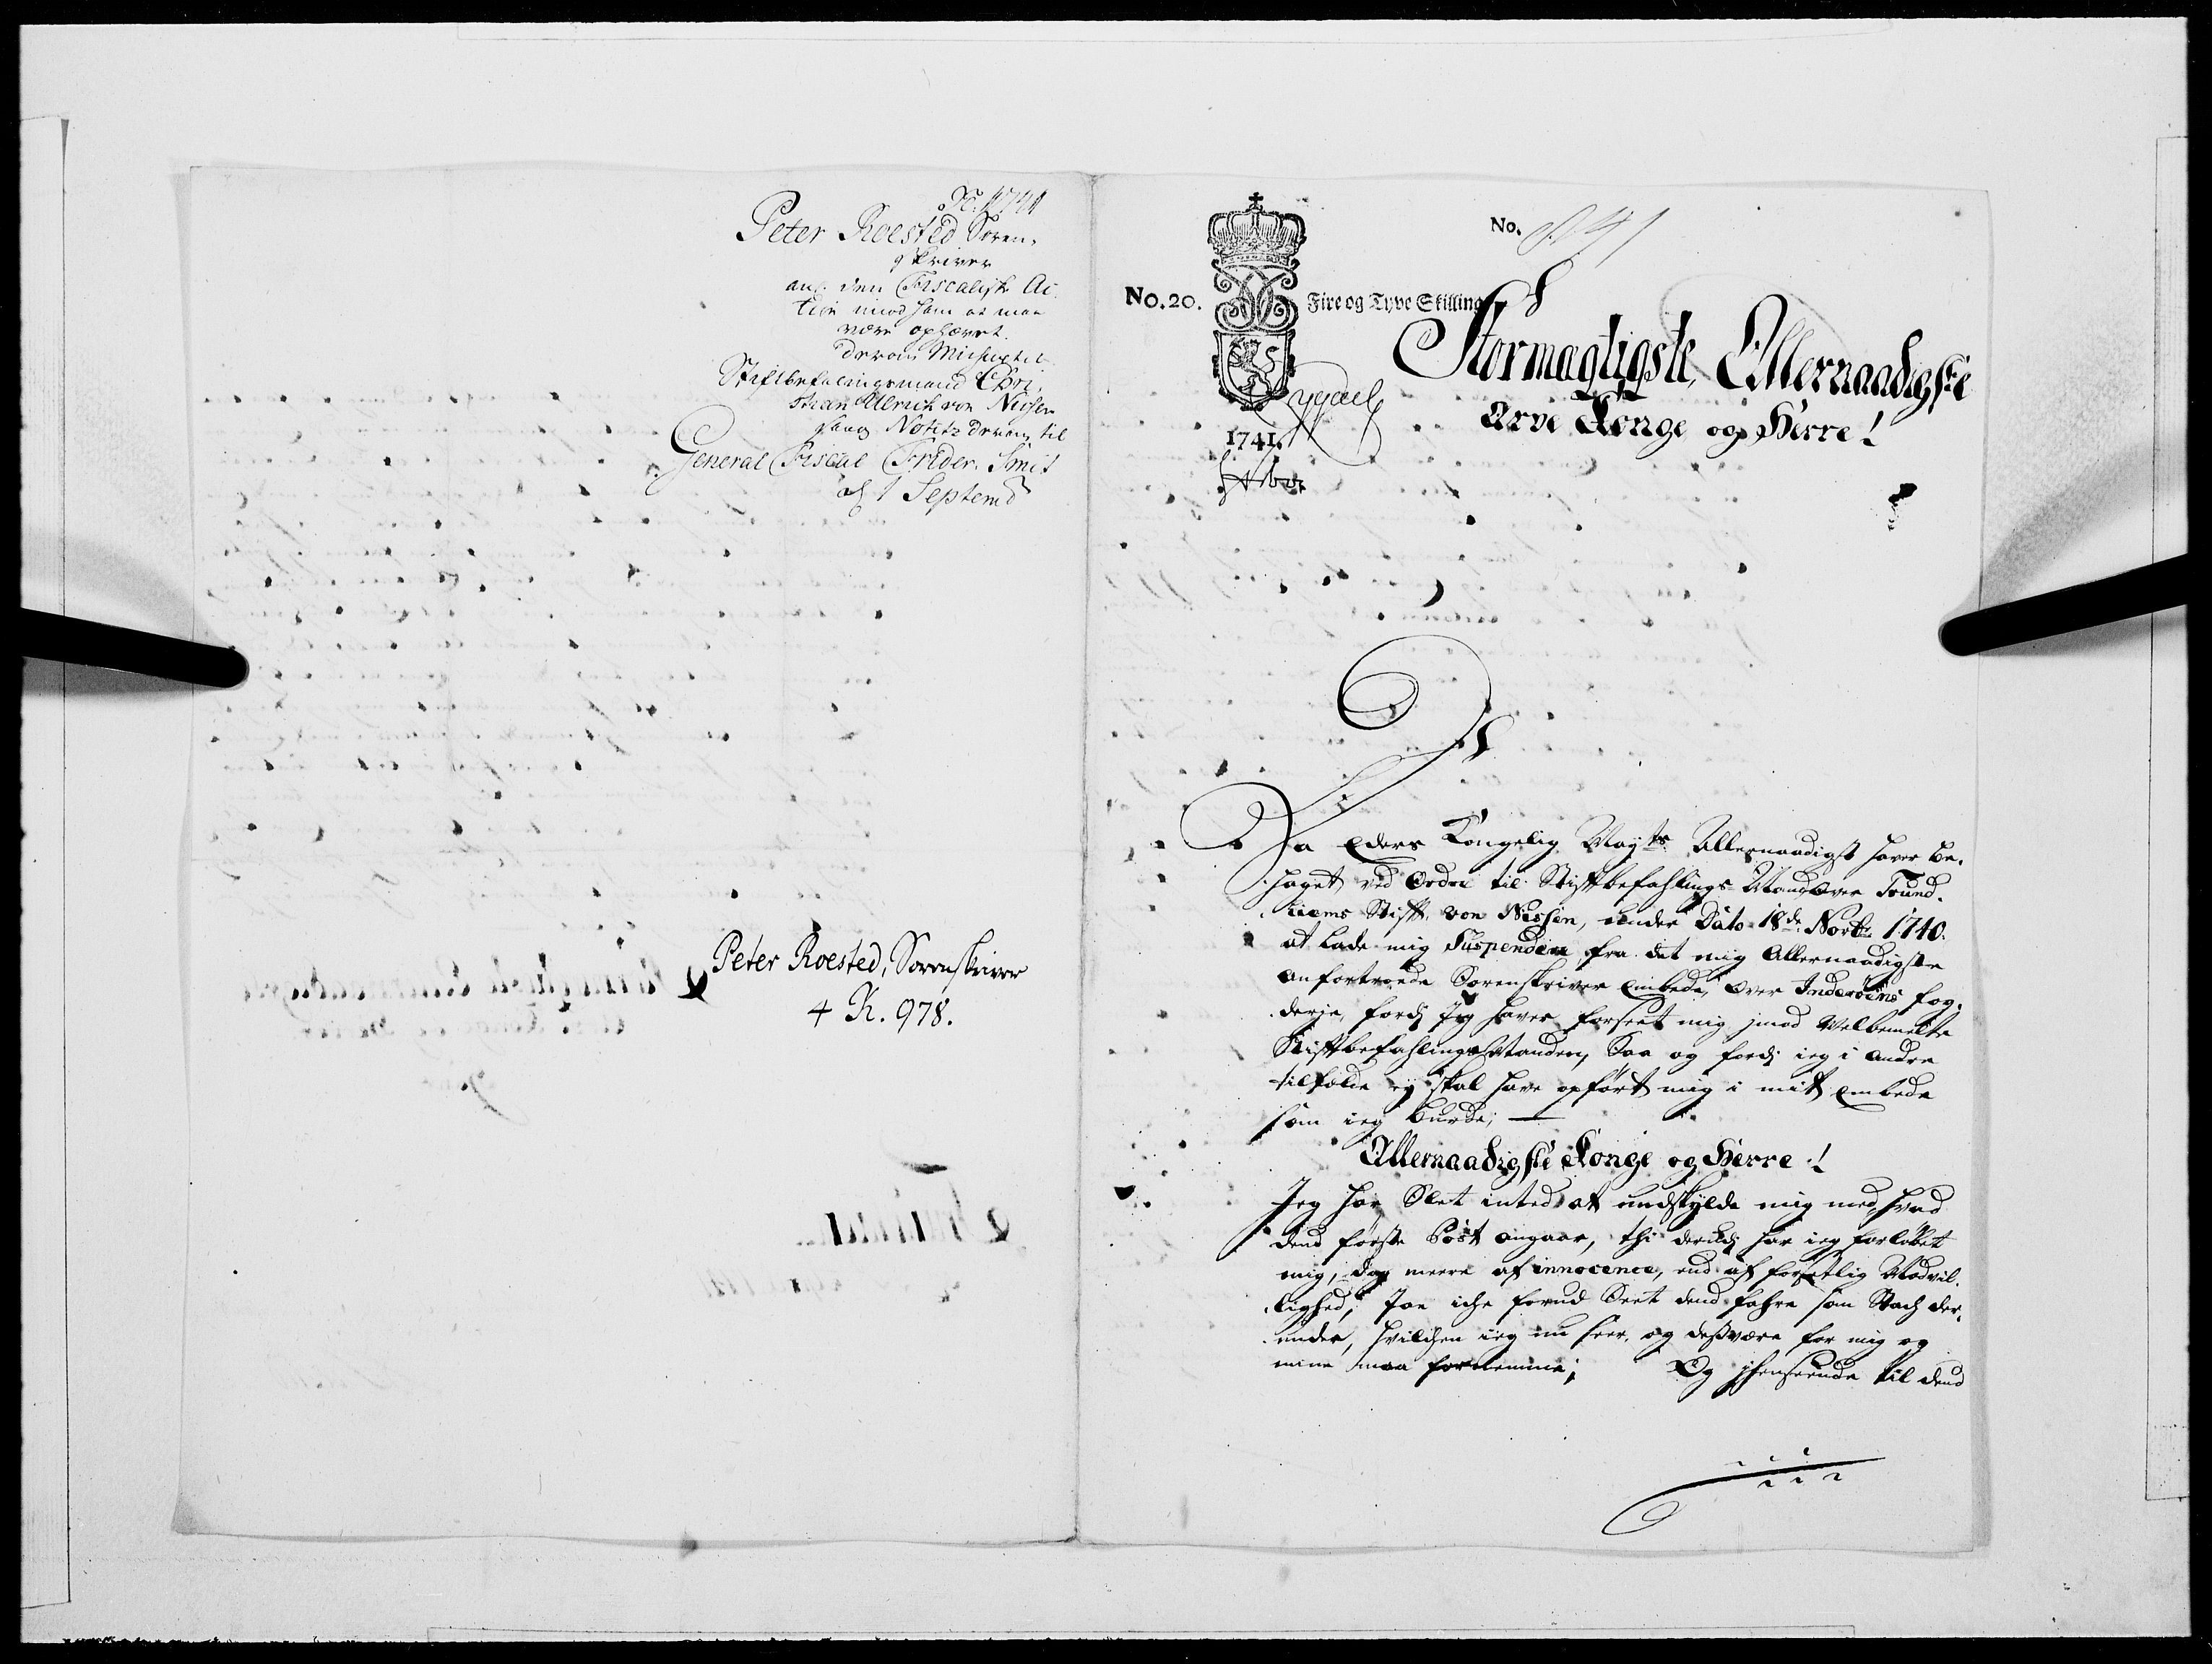 1741
Peter Roested Soren,
skriver
ang. den Fiscalisk Ac
tion imod ham at maa
være ophævet.
Derom Missive til
Stiftbefalingsmand Chri,
stian Ulrich von Nissen
samt Notitz derom til
General Fiscal Frider. Smit
af 1 Septemb
Peter Roested, Sorenskriver
4 K. 978.
No. 841
No. 20. Fire og Tyve Skilling
1741.
Stormægtigste, Allernaadigste
Arve Konge og Herre!
Da Eders Kongelig Mayts Allernaadigst haver be,
haget ved Ordre til Stiftbefahlings Mand over Trund,
hiems Stift von Nissen, under Dato 18de Novbr 1740.
at lade mig Suspendere fra det mig Allernaadigste
anfortroede Sorenskriver Embede, over Inderøens fog,
derje, fordj Jeg haver forseet mig imod Welbemelte
Stiftbefahlings Manden, Saa og fordj ieg i andre
tilfælde ey skal have opført mig i mit Embede
som ieg burde; —
Allernaadigste Konge og Herre!
Jeg har Slet inted at undskylde mig med, hvad
dend første Post angaar, thi derudj har ieg forløbet
mig, dog meere af innocence, end af forsetlig Modvil,
lighed, Jae iche forud Seet dend fahre som Stach der,
under, hvilchen ieg nu seer, og dessværre for mig og
mine maa fornemme; Og ihenseende til dend